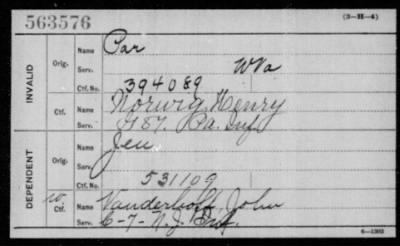 563576
(3-H-4)
INVALID
Orig.
Name
Car
Serv.
W Va
Ctf. No.
394089
Ctf.
Name
Norwig, Henry
Serv.
H 87. Pa. Inf
DEPENDENT
Orig.
Name
Jeu
Serv.
Ctf. No.
531109
Ctf.
Name
Vanderhoff, John
Serv.
C-7-N.J. Inf.
6-1303